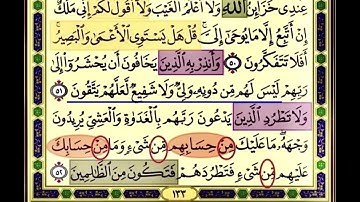 عِندِى خَزَآئِنُ ٱللَّهِ وَلَآ أَعْلَمُ ٱلْغَيْبَ وَلَآ أَقُولُ لَكُمْ إِنِّى مَلَكٌ
إِنْ أَتَّبِعُ إِلَّا مَا يُوحَىٰٓ إِلَىَّ ۚ قُلْ هَلْ يَسْتَوِى ٱلْأَعْمَىٰ وَٱلْبَصِيرُ ۚ
أَفَلَا تَتَفَكَّرُونَ ٥٠ وَأَنذِرْ بِهِ ٱلَّذِينَ يَخَافُونَ أَن يُحْشَرُوٓا۟ إِلَىٰ
رَبِّهِمْ لَيْسَ لَهُم مِّن دُونِهِۦ وَلِىٌّ وَلَا شَفِيعٌ لَّعَلَّهُمْ يَتَّقُونَ ٥١
وَلَا تَطْرُدِ ٱلَّذِينَ يَدْعُونَ رَبَّهُم بِٱلْغَدَوٰةِ وَٱلْعَشِىِّ يُرِيدُونَ
وَجْهَهُۥ ۖ مَا عَلَيْكَ مِنْ حِسَابِهِم مِّن شَىْءٍ وَمَا مِنْ حِسَابِكَ
عَلَيْهِم مِّن شَىْءٍ فَتَطْرُدَهُمْ فَتَكُونَ مِنَ ٱلظَّٰلِمِينَ ٥٢
١٣٣